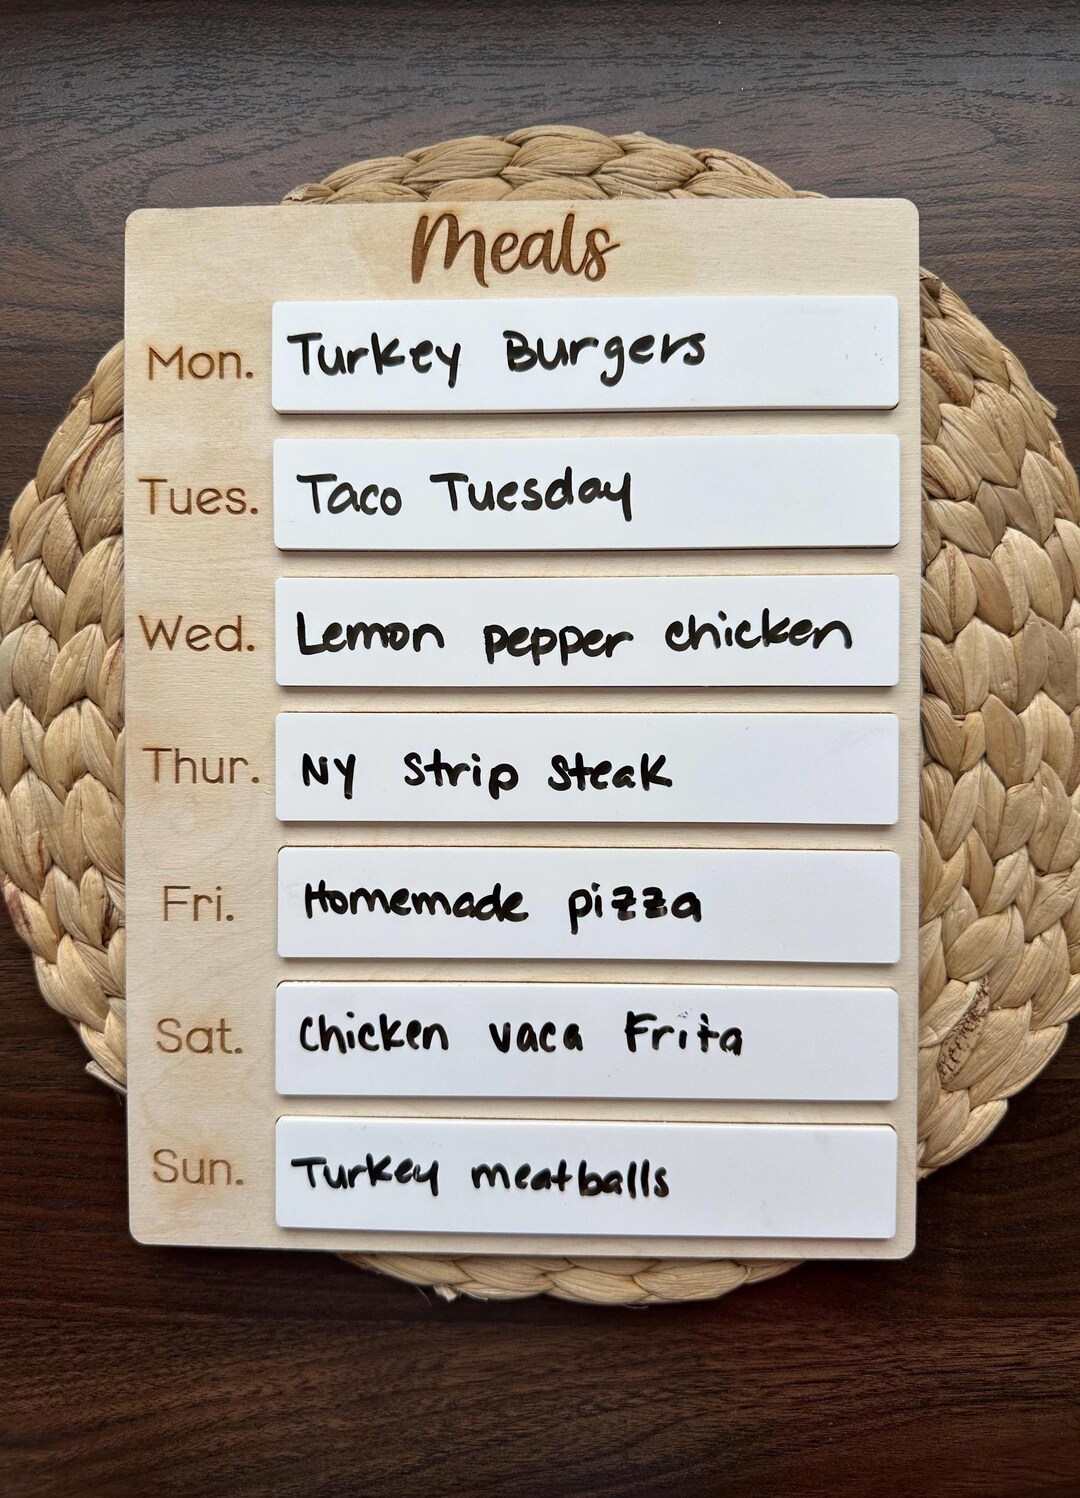 Meals
Mon. Turkey Burgers
Tues. Taco Tuesday
Wed. Lemon pepper chicken
Thur. NY strip steak
Fri. Homemade pizza
Sat. Chicken vaca Frita
Sun. Turkey meatballs